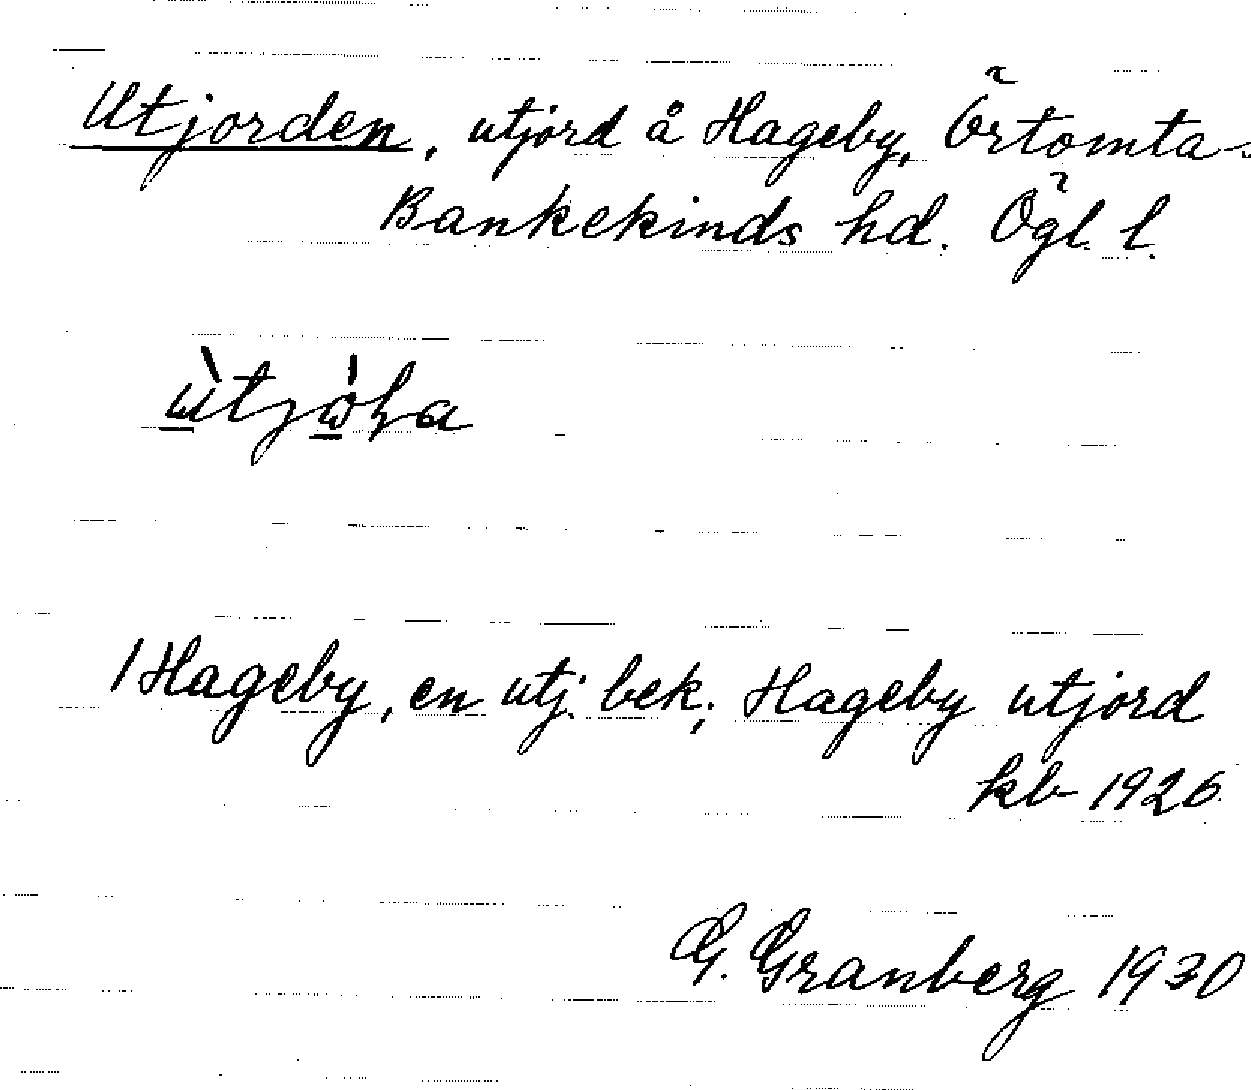 Utjorden, utjord å Hageby, Örtomta-
Bankekinds hd. Ögl. l.
1 Hageby, en utj. bek.; Hageby utjord
kb 1926.
G. Granberg 1930